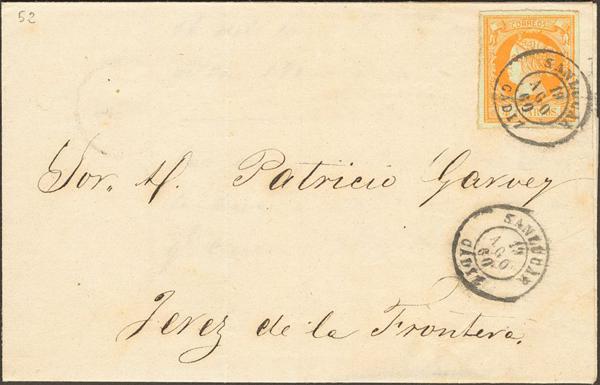 52
CORREOS
SANLUCAR
19
AGO
60
CADIZ
Sor. D. Patricio Garvey
SANLUCAR
19
AGO
60
CADIZ
Jerez de la Frontera.